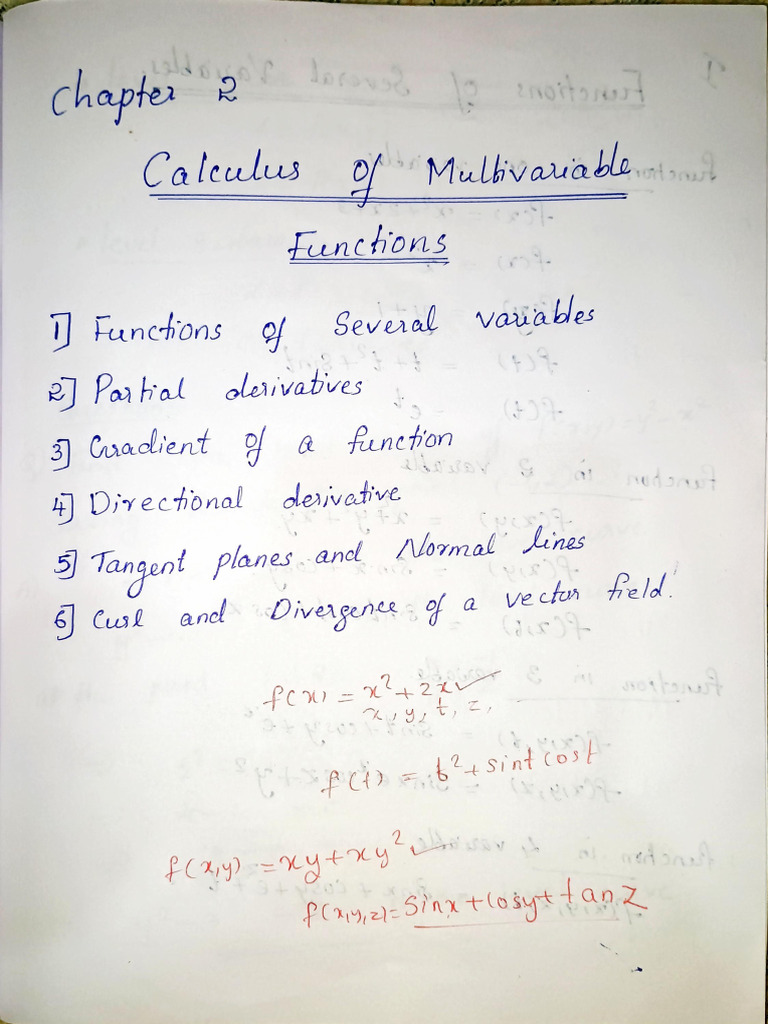 Chapter 2
Calculus of Multivariable
Functions
1] Functions of Several variables
2] Partial derivatives
3] Gradient of a function
4] Directional derivative
5] Tangent planes and Normal lines
6] Curl and Divergence of a vector field.
f(x) = x² + 2x ✓
x, y, t, z,
f(t) = t² + sint cost
f(x,y) = xy + xy² ✓
f(x,y,z) = sinx + cosy + tanz